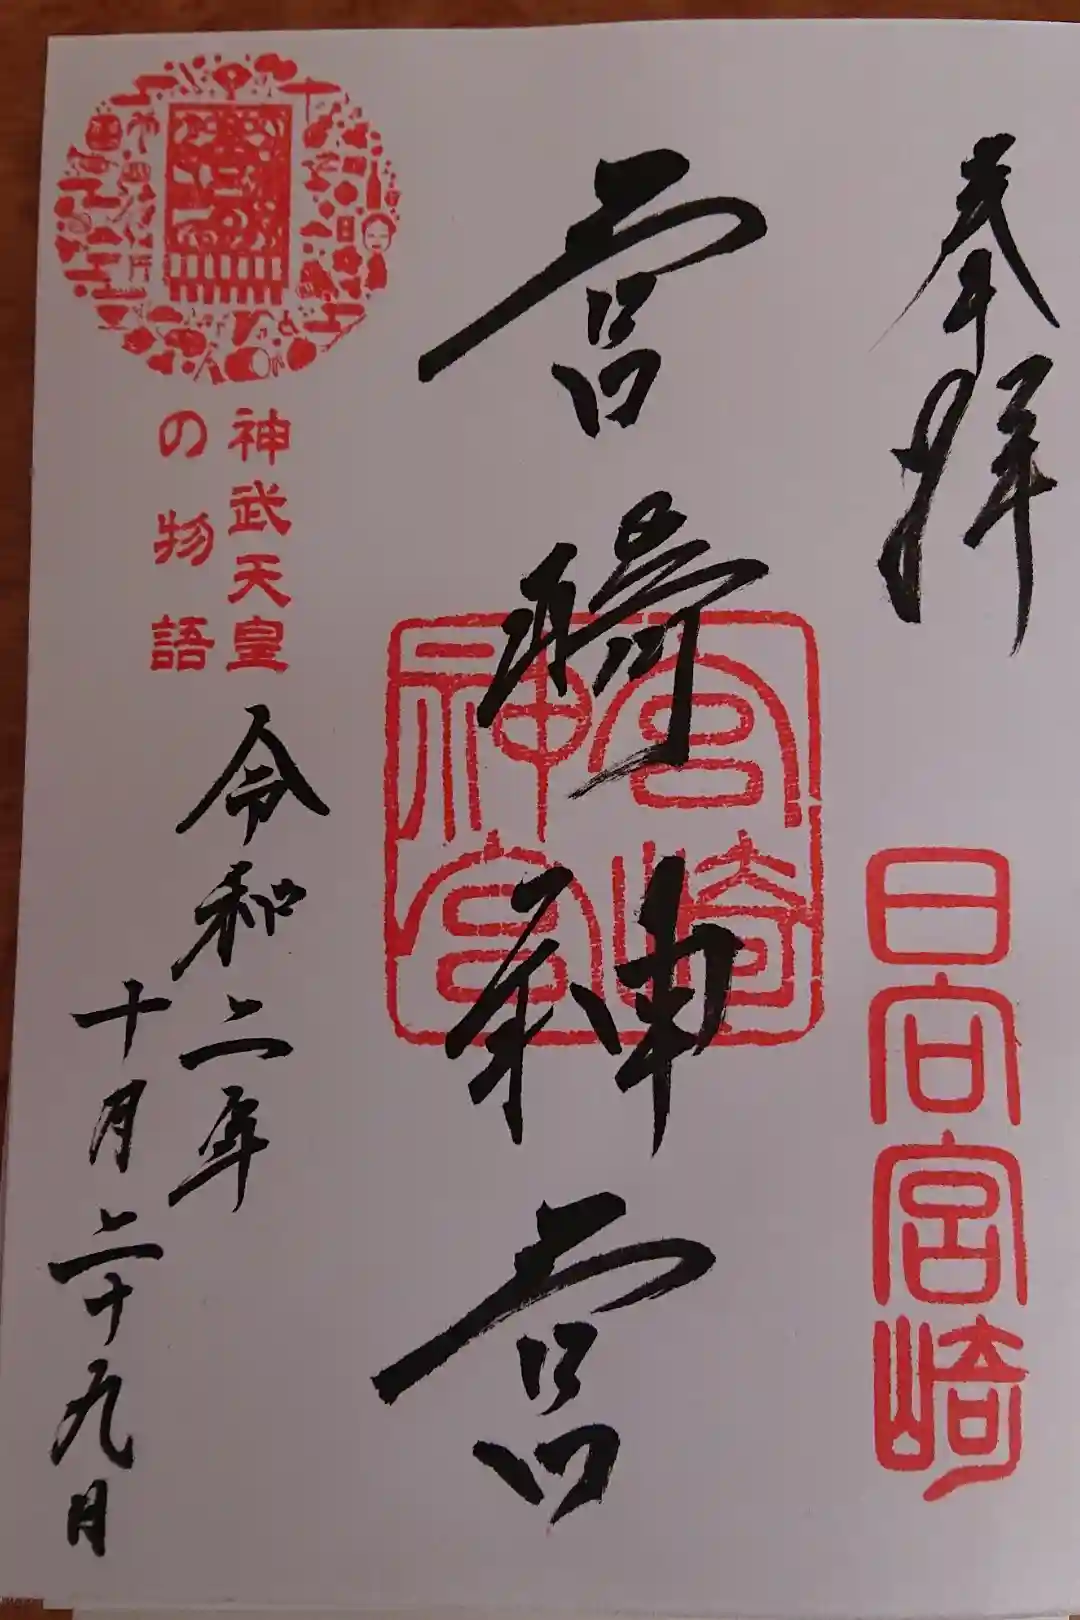 奉拝
日向宮崎
宮崎神宮
宮崎
神宮
神武天皇
の物語
令和二年
十月二十九日